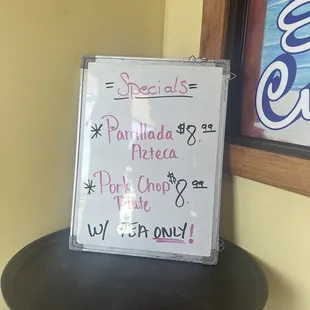 =Specials=
* Parrillada $8.99
Azteca
* Pork Chop $8.99
Plate
W/ TEA ONLY!